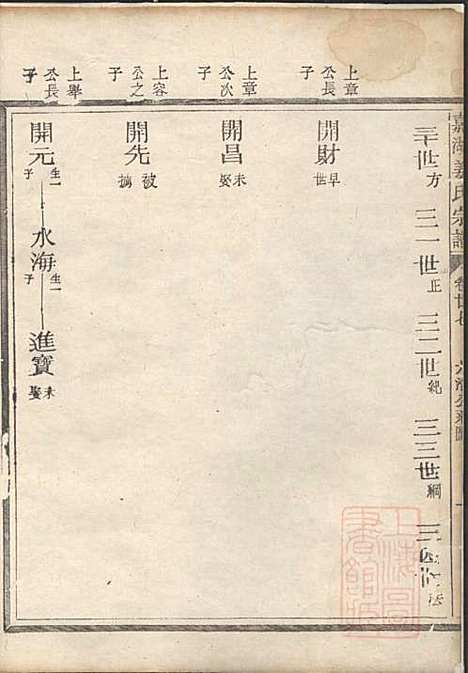 嘉湖姜氏宗譜
卷廿七
三十世方 三一世正 三二世紀 三三世綱 三四世法
上章公長子
開財早世
上章公次子
開昌未娶
上容公之子
開先被擄
上舉公長子
開元生一子 水海生一子 進寶未娶
上海圖書館藏